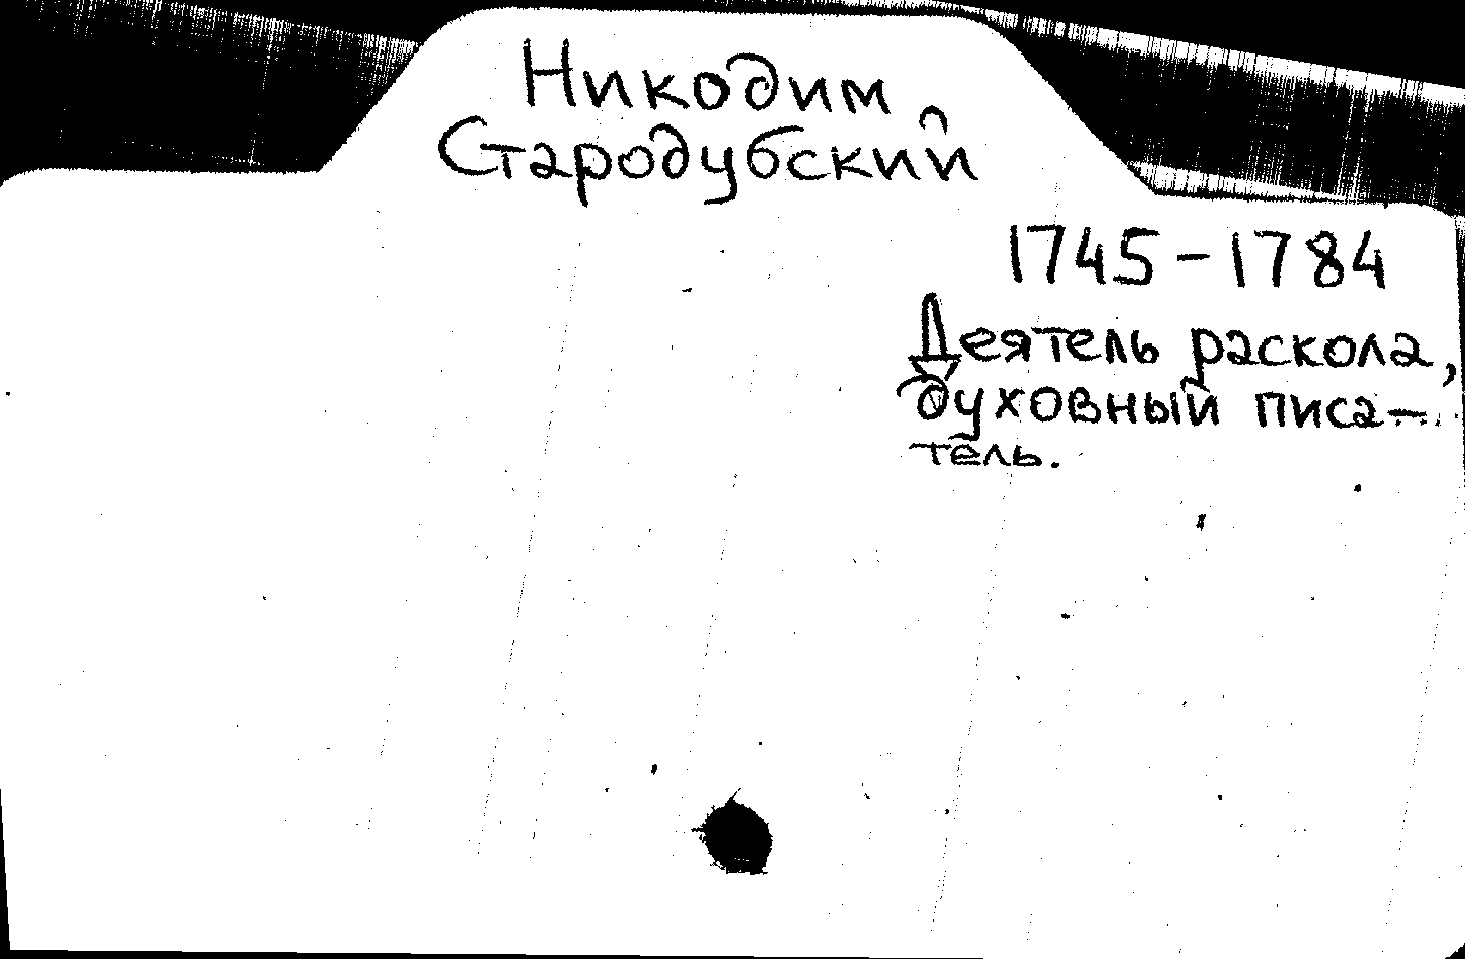 Никодим
Стародубский
1745-1784
Деятель раскола,
духовный писа-
тель.